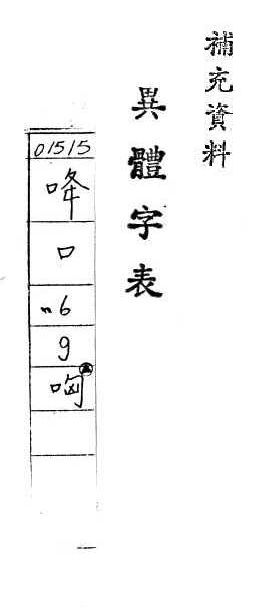 補充資料
異體字表
01515
口
6
9
哅